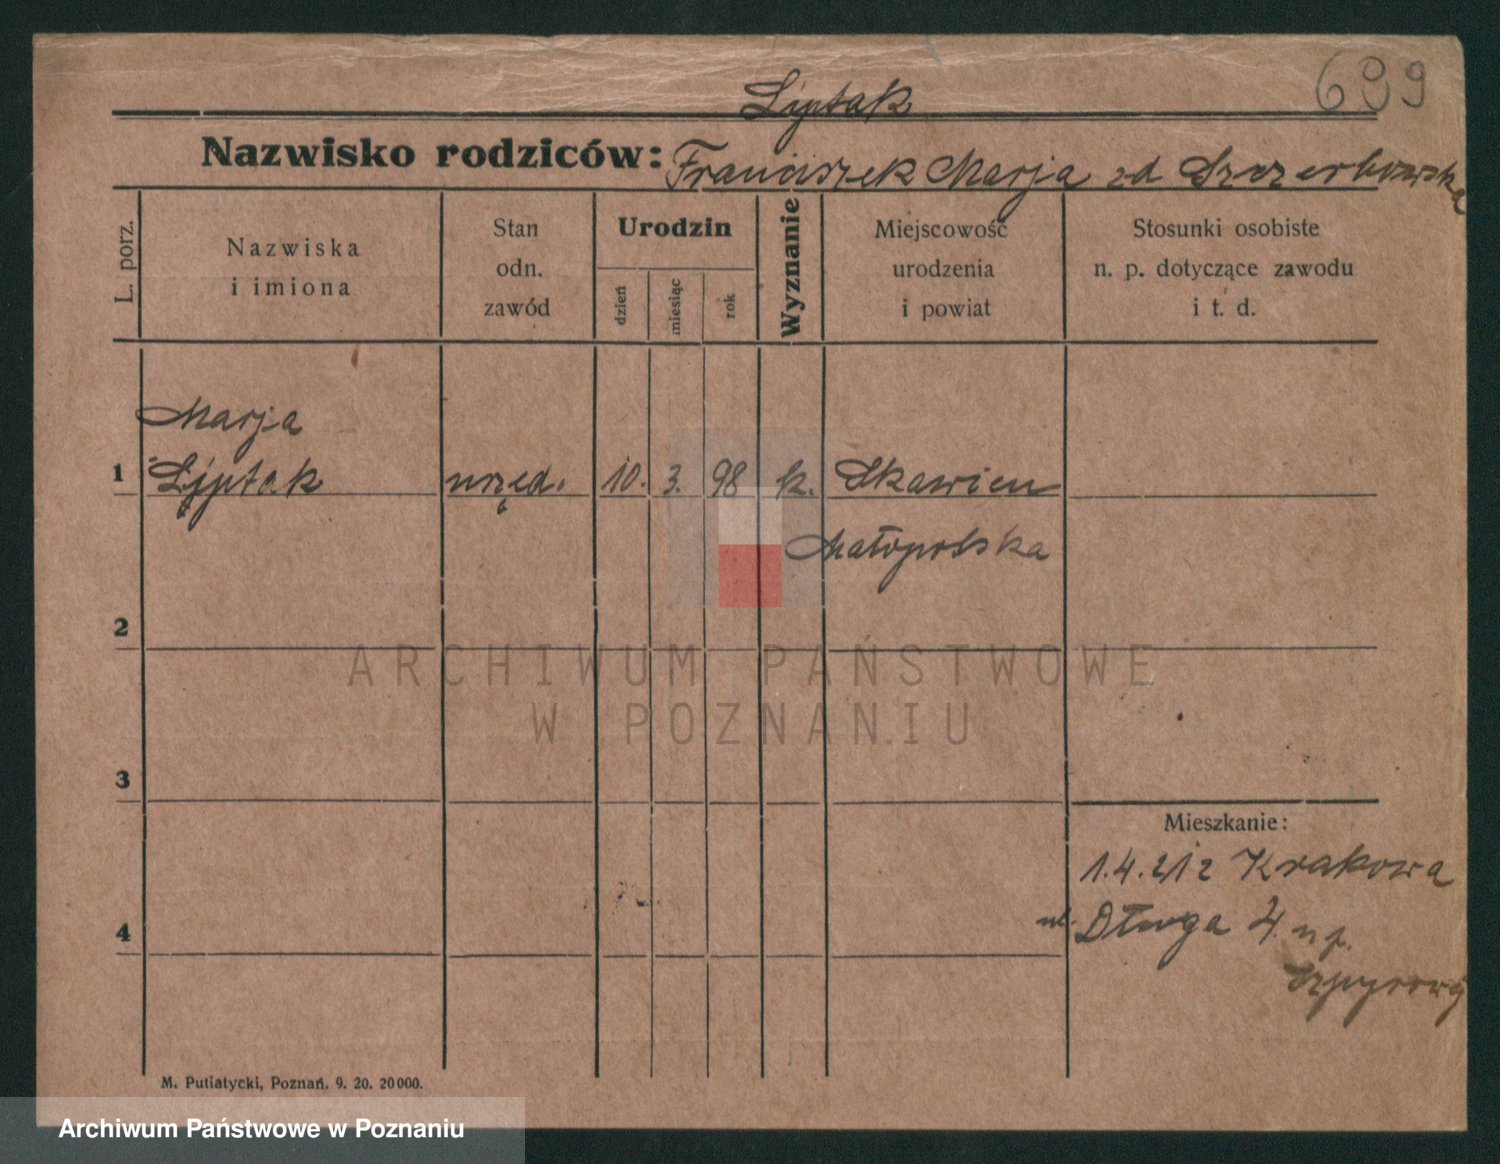 699
Liptak
Nazwisko rodziców: Franciszek Marja zd Szczerbowska
L. porz.
Nazwiska
i imiona
Stan
odn.
zawód
Urodzin
dzień
miesiąc
rok
Wyznanie
Miejscowość
urodzenia
i powiat
Stosunki osobiste
n. p. dotyczące zawodu
i t. d.
Marja
1 Liptak urzęd. 10. 3. 98 k. Skawien
Małopolska
2
ARCHIWUM PAŃSTWOWE
W POZNANIU
3
Mieszkanie:
1.4.21 z Krakowa
4 ul. Długa 4 u p.
M. Putiatycki, Poznań. 9. 20. 20000.
Archiwum Państwowe w Poznaniu